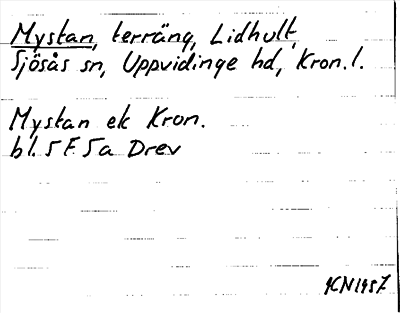 Mystan, terräng, Lidhult,
Sjösås sn, Uppvidinge hd, Kron. l.
Mystan ek Kron.
bl. 5 F 5a Drev
KN 1957